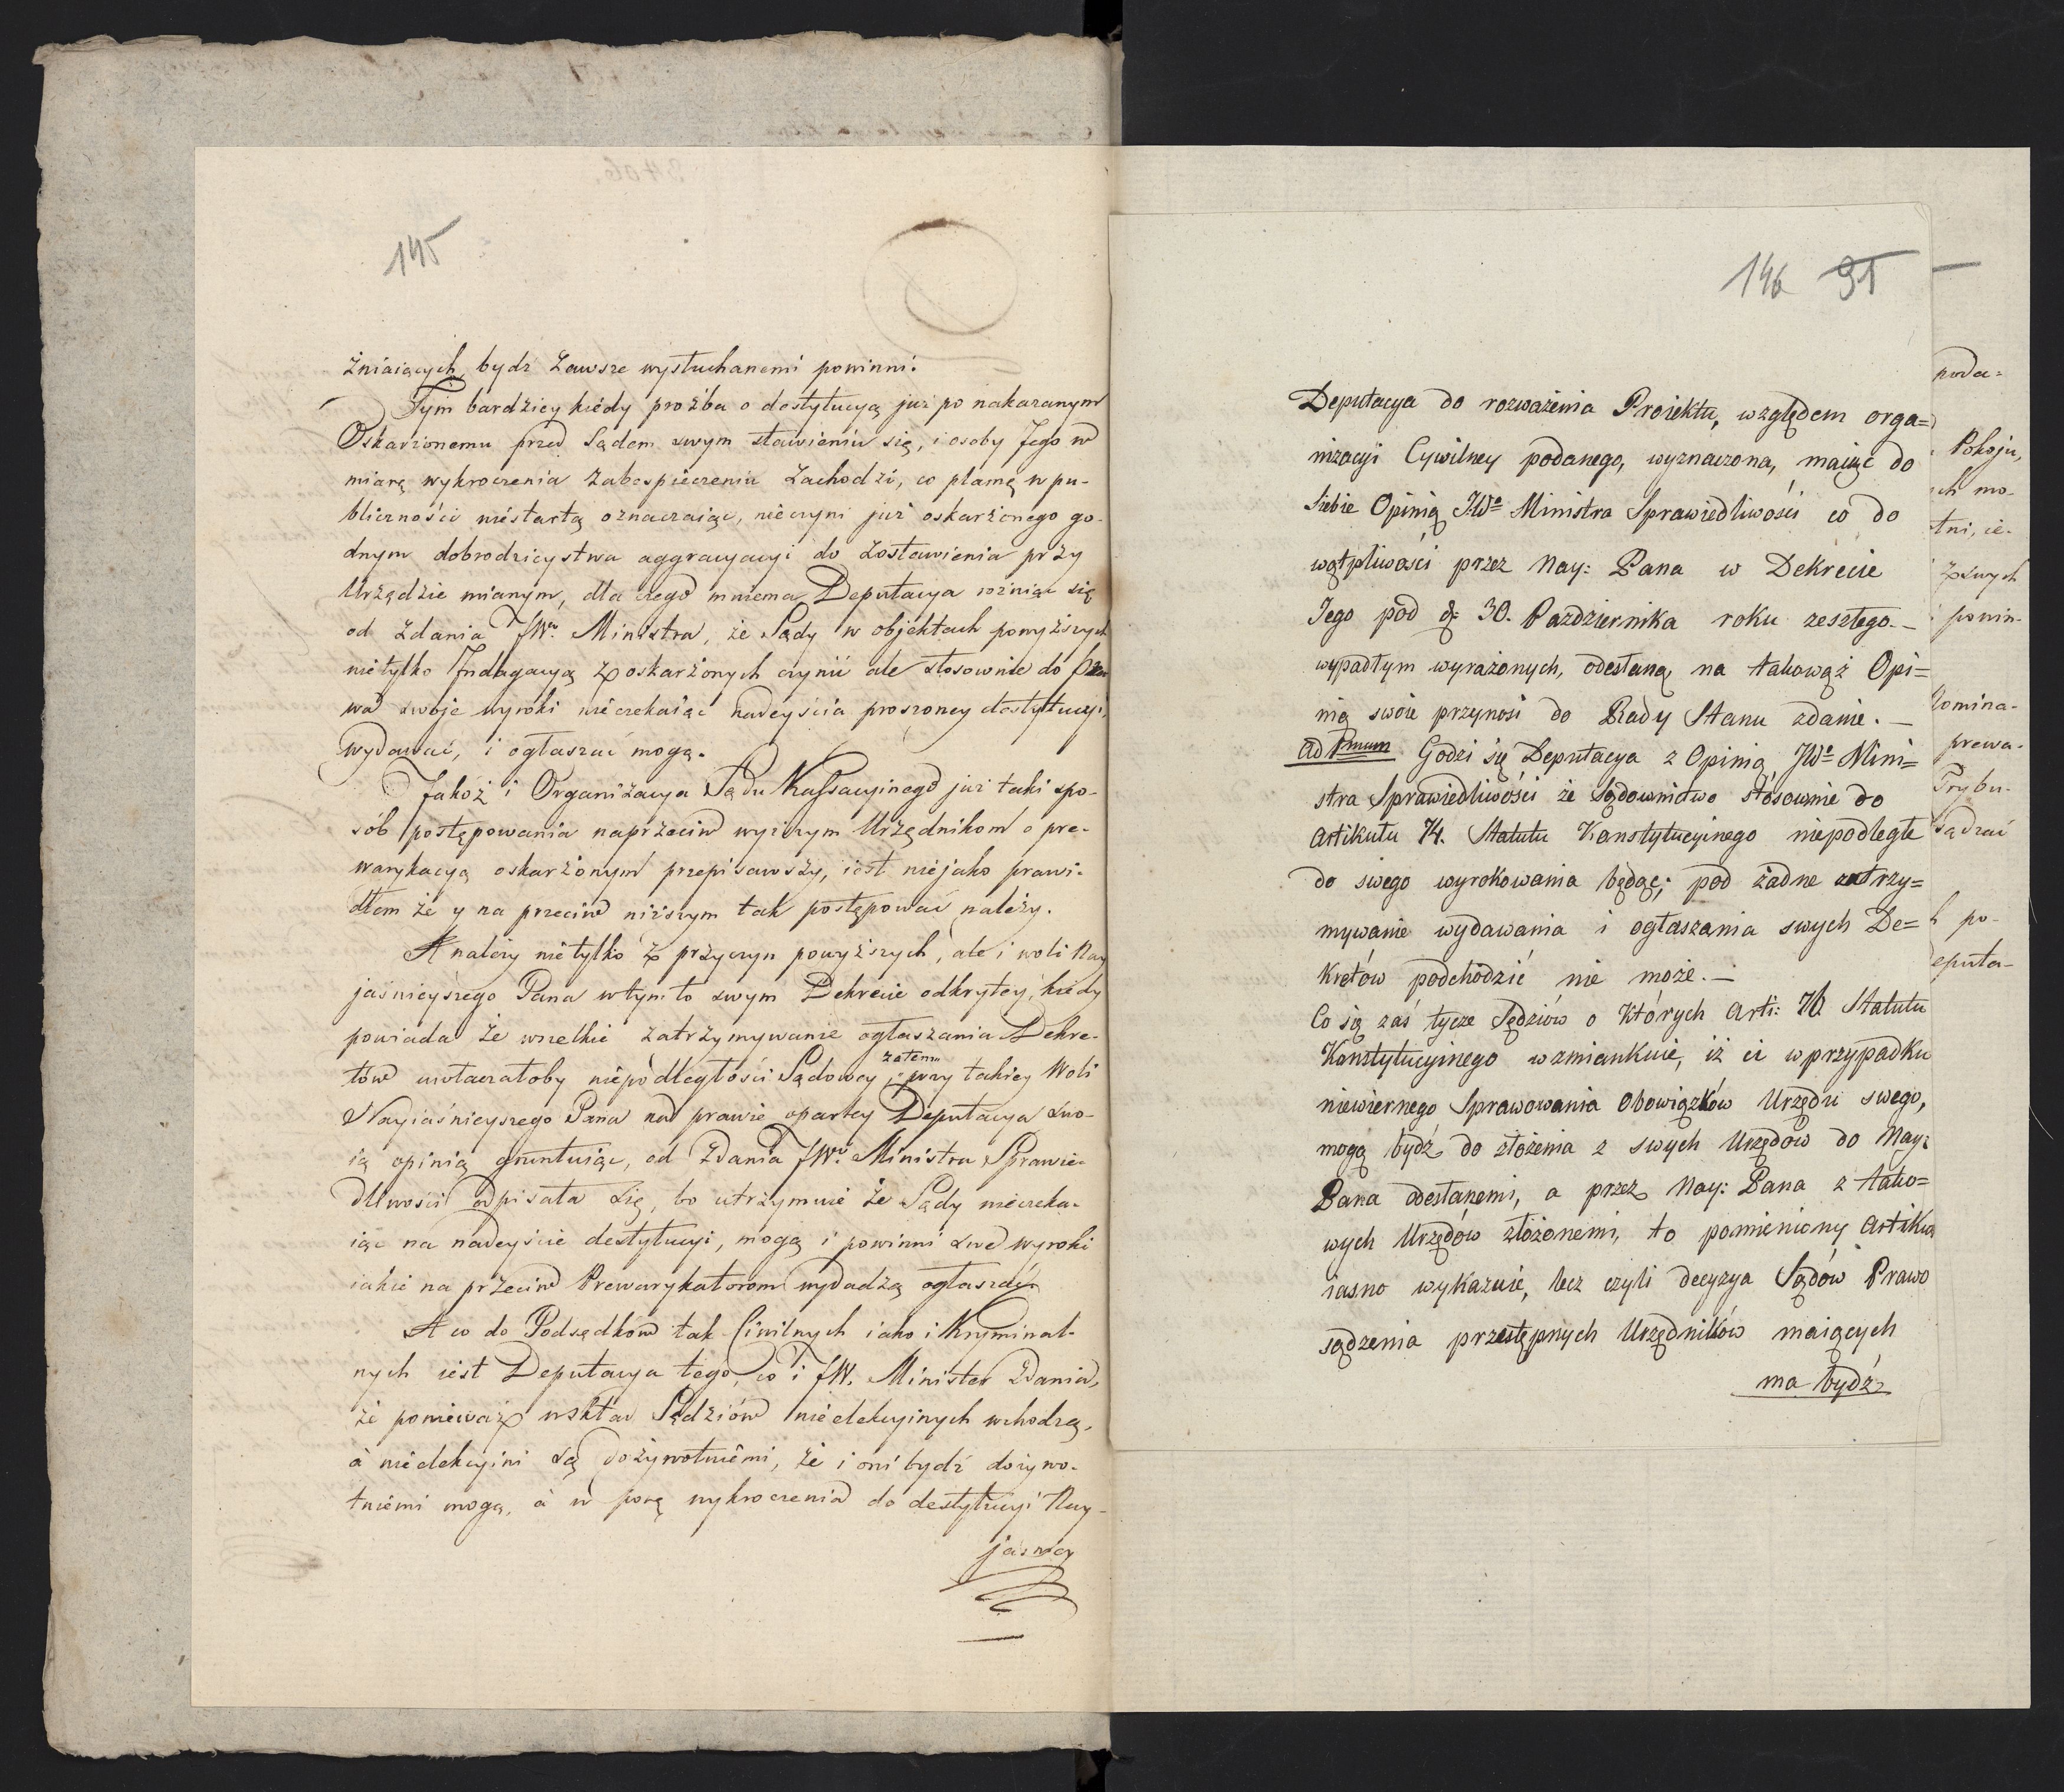 145
żniaiących, bydź zawsze wysłuchanemi powinni.
Tym bardziey kiedy proźba o destytucyą już po nakazanym
Oskarżonemu przed Sądem swym stawieniu się, i osoby Jego w
miarę wykroczenia zabespieczeniu zachodzi, co plamę w pu-
bliczności niestartą oznaczaiąc, nieczyni już oskarżonego go-
dnym dobrodzieystwa aggracyacyi do zostawienia przy
Urzędzie mianym, dla czego mniema Deputacya rożniąc się
od zdania JWo. Ministra, że Sądy w objektach powyższych
nietylko Indagacyą z oskarżonych czynić ale stosownie do Pra
wa swoje wyroki nieczekaiąc nadeyścia proszoney destytucyi,
wydawać, i ogłaszać mogą.
Jakoż i Organizacya Sądu Kassacyinego już taki spo-
sób postępowania naprzeciw wyższym Urzędnikom o pre-
warykacyą oskarżonym przepisawszy, iest niejako prawi-
dłem że y na przeciw niższym tak postępować należy.
A należy nietylko z przyczyn powyższych, ale i woli Nay
jaśnieyszego Pana w tym to swym Dekrecie odkrytey, kiedy
powiada że wszelkie zatrzymywanie ogłaszania Dekre-
tów uwłaczałoby niepodległości Sądowey, przy zatem takiey Woli
Nayiaśnieyszego Pana na prawie opartey Deputacya swo-
ią opinią gruntuiąc, od zdania JWo. Ministra Sprawie-
dliwości odpisała się, bo utrzymuie że Sądy nieczeka-
iąc na nadeyście destytucyi, mogą i powinni swe wyroki
iakie na przeciw Prewarykatorom wydadzą ogłaszać.
A co do Podsędków tak Civilnych iako i Kryminal-
nych iest Deputacya tego, co i JW. Minister zdania,
że ponieważ w skład Sędziów nieelekcyinych wchodzą,
à nieelekcyini są dożywotniemi, że i oni bydź dożywo-
tniemi mogą, à w porę wykroczenia do destytucyi Nay-
jaśniey
146 91
Deputacya do rozważenia Proiektu, względem orga=
nizacyi Cywilney podanego, wyznaczona, maiąc do
Siebie Opinią JWo Ministra Sprawiedliwości co do
wątpliwości przez Nay: Pana w Dekrecie
Jego pod d: 30. Pazdziernika roku zeszłego. —
wypadłym wyrażonych, odesłaną na takowąż Opi=
nią swoie przynosi do Rady Stanu zdanie. —
Ad Pmum Godzi się Deputacya z Opinią JWo Mini=
stra Sprawiedliwości że Sądownictwo stosownie do
Artikułu 74. Statutu Konstytucyinego niepodległe
do swego wyrokowania będąc; pod żadne zatrzy=
mywanie wydawania i ogłaszania swych De=
kretów podchodzić nie może. —
Co się zaś tycze Sędziów o których Arti: 76 Statutu
Konstytucyinego wzmiankuie, iż ci w przypadku
niewiernego Sprawowania Obowiązków Urzędu swego,
mogą bydź do złożenia z swych Urzędów do Nay:
Pana odesłanemi, a przez Nay: Pana z tako=
wych Urzędów złożonemi, to pomieniony Artikuł
iasno wykazuie, lecz czyli decyzya Sądów Prawo
sądzenia przestępnych Urzędników maiących
ma bydź
poda=
Pokoju,
ych mo-
tni, ie-
zswych
powin-
Nomina-
prewa-
Trybu-
sądzać
h po-
Deputa-